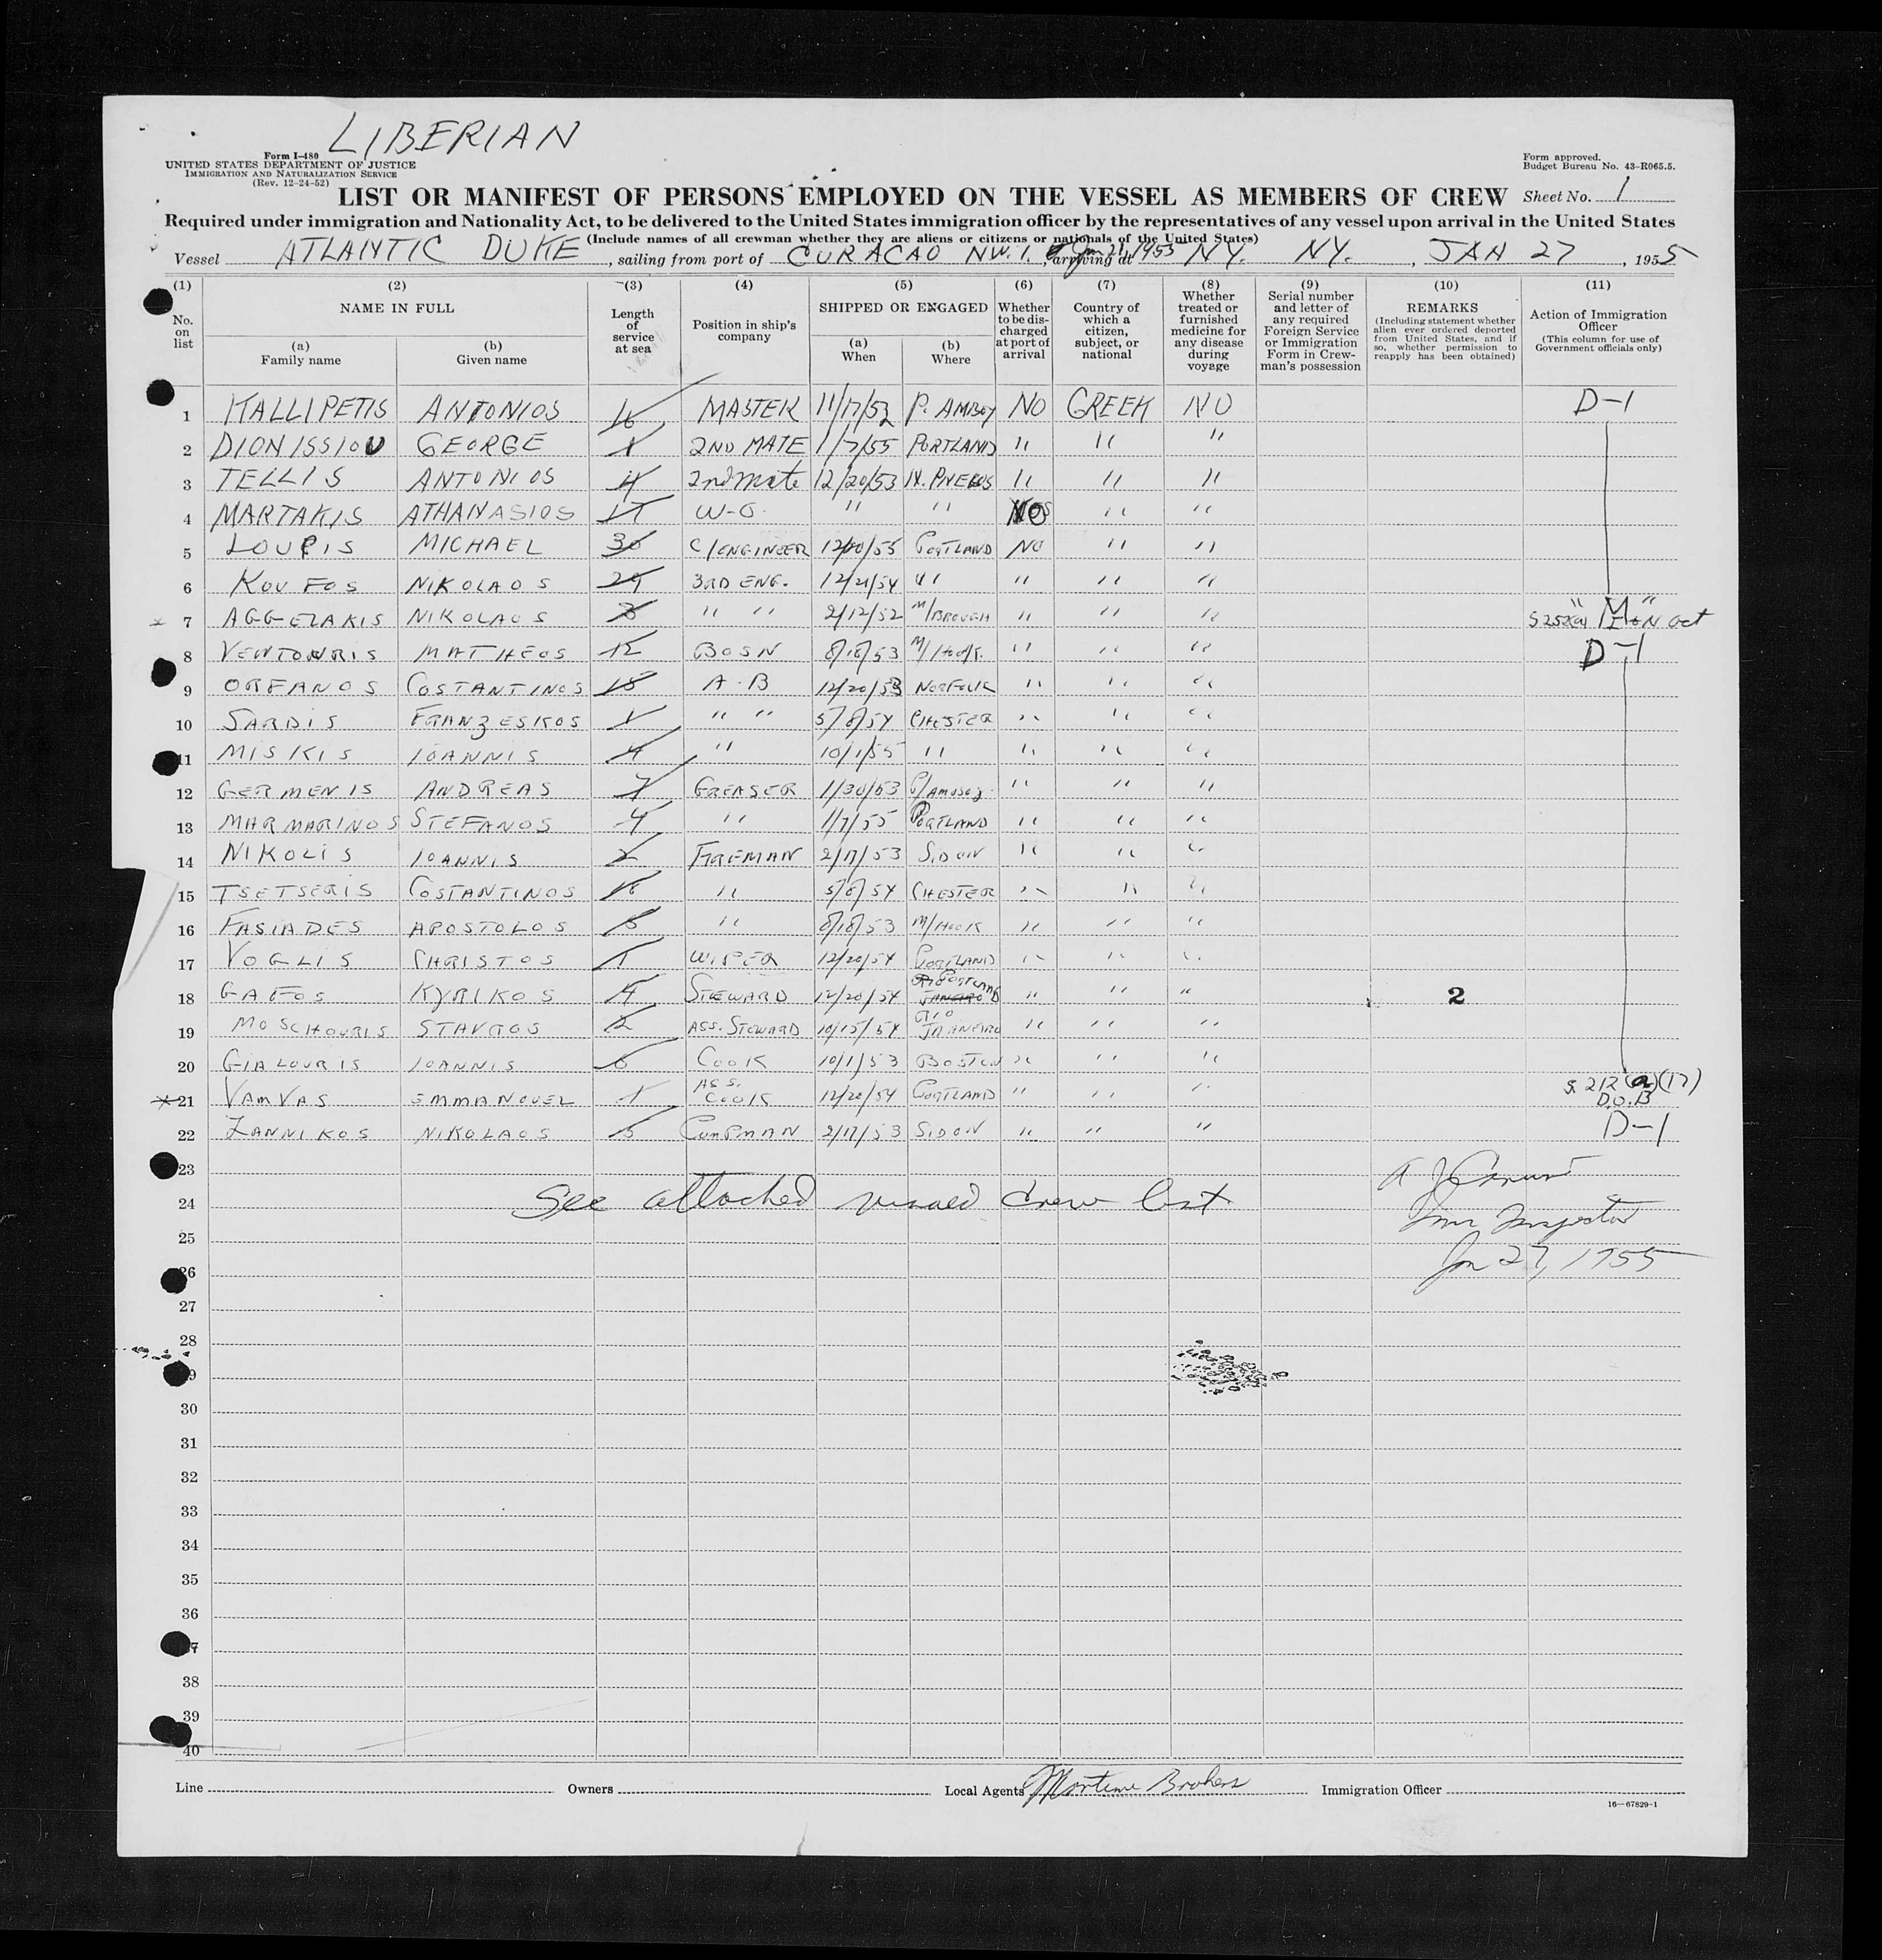 LIBERIAN
Form I-480
UNITED STATES DEPARTMENT OF JUSTICE
IMMIGRATION AND NATURALIZATION SERVICE
(Rev. 12-24-52)
Form approved.
Budget Bureau No. 43-R065.5.
LIST OR MANIFEST OF PERSONS EMPLOYED ON THE VESSEL AS MEMBERS OF CREW Sheet No. 1
Required under immigration and Nationality Act, to be delivered to the United States immigration officer by the representatives of any vessel upon arrival in the United States
(Include names of all crewman whether they are aliens or citizens or nationals of the United States)
Vessel ATLANTIC DUKE, sailing from port of CURACAO N.W.I. Jan 21, 1955, arriving at NY. NY., JAN 27, 1955
(1) (2) (3) (4) (5) (6) (7) (8) (9) (10) (11)
No. on list
NAME IN FULL
(a) Family name
(b) Given name
Length of service at sea
Position in ship's company
SHIPPED OR ENGAGED
(a) When
(b) Where
Whether to be discharged at port of arrival
Country of which a citizen, subject, or national
Whether treated or furnished medicine for any disease during voyage
Serial number and letter of any required Foreign Service or Immigration Form in Crewman's possession
REMARKS
(Including statement whether alien ever ordered deported from United States, and if so, whether permission to reapply has been obtained)
Action of Immigration Officer
(This column for use of Government officials only)
1 KALLIPETIS ANTONIOS 16 MASTER 11/17/52 P. AMBOY NO GREEK NO D-1
2 DIONISSIOU GEORGE 1 2ND MATE 1/7/55 PORTLAND " " "
3 TELLIS ANTONIOS 4 2nd mate 12/20/53 " " "
4 MARTAKIS ATHANASIOS 17 W-O. " " NO " "
5 LOUPIS MICHAEL 30 C/ENGINEER PORTLAND NO " "
6 KOUFOS NIKOLAOS 29 3RD ENG. 12/21/54 " " " "
7 AGGELAKIS NIKOLAOS 3 " " 2/12/52 " " " "M"
8 VENTOURIS MATTHEOS 12 BOSN 8/18/53 M/HOOK. " " " D-1
9 ORFANOS COSTANTINOS 15 A-B 12/20/53 NORFOLK " " "
10 SARDIS FRANZESKOS 1 " " 5/8/54 CHESTER " " "
11 MISKIS IOANNIS 4 " 10/1/55 " " " "
12 GERMENIS ANDREAS 7 GREASER 1/30/53 " " "
13 MARMARINOS STEFANOS 4 " 1/7/55 PORTLAND " " "
14 NIKOLIS IOANNIS 2 FIREMAN 2/17/53 SIDON " " "
15 TSETSERIS COSTANTINOS " 5/8/54 CHESTER " " "
16 FASIADES APOSTOLOS 5 " 8/18/53 M/HOOK " " "
17 VOGLIS CHRISTOS 1 WIPER 12/20/54 PORTLAND " " "
18 GAFOS KYRIKOS 4 STEWARD 12/20/54 PORTLAND " " " 2
19 MOSCHOURIS STAVROS 2 ASS. STEWARD 10/15/54 RIO JANEIRO " " "
20 GIALOURIS IOANNIS 6 COOK 10/1/53 BOSTON " " "
21 VAMVAS EMMANOUEL 1 ASS. COOK 12/20/54 PORTLAND " " " S. 212(a)(17) D.O.B
22 ZANNIKOS NIKOLAOS 5 PUMPMAN 2/17/53 SIDON " " " D-1
23
24 See attached visaed crew list
Imm Inspector
25
Jan 27, 1955
26
27
28
29
30
31
32
33
34
35
36
37
38
39
40
Line Owners Local Agents Brokers Immigration Officer
16—67829-1